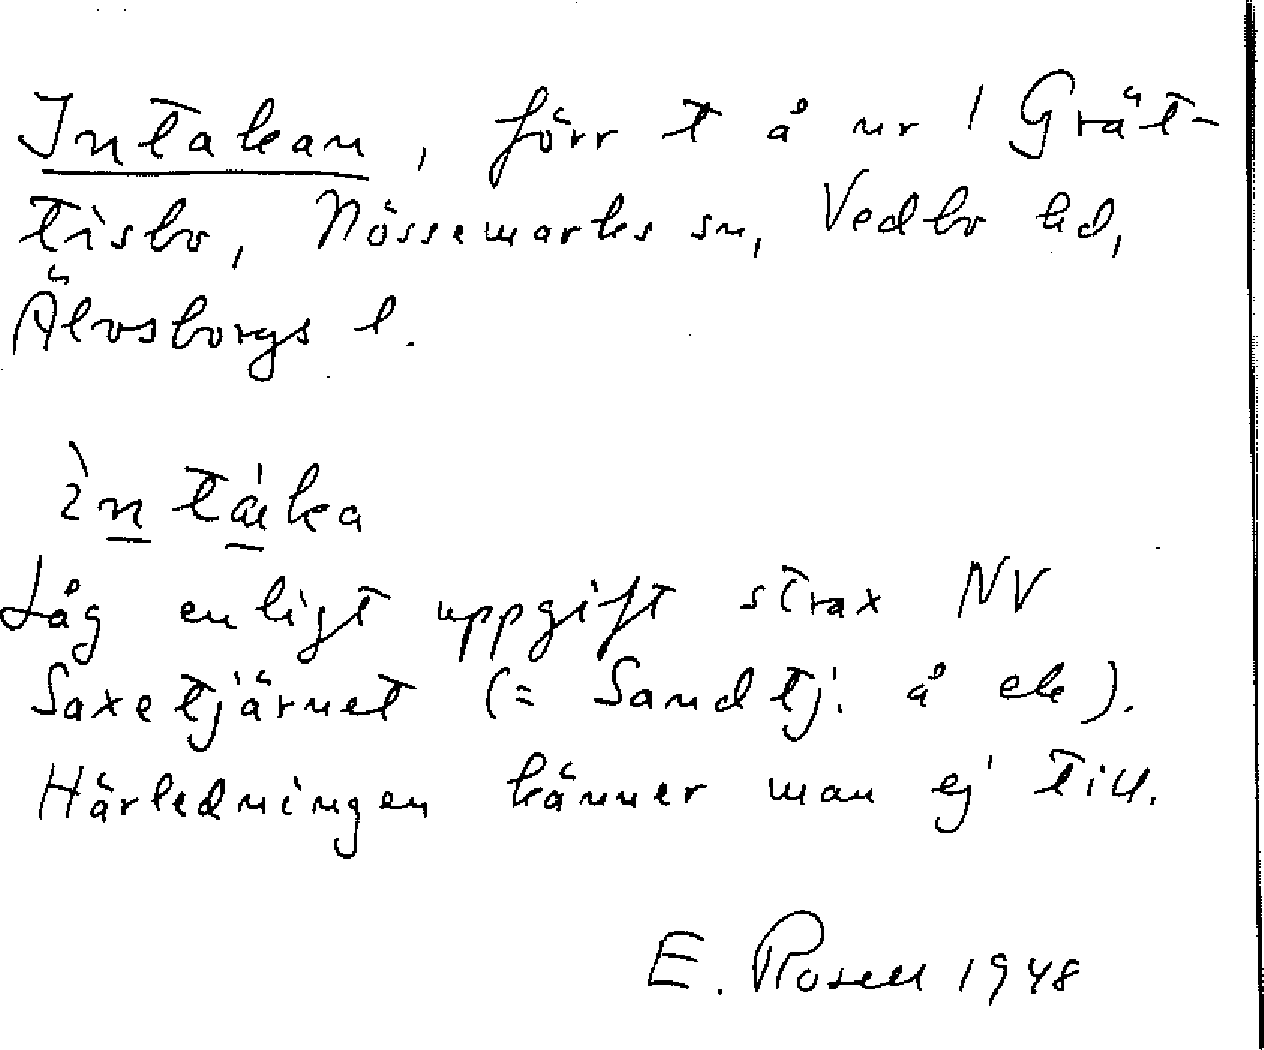 Intakan, förr t å nr 1 Grät-
tisbo, Nössemarks sn, Vedbo hd,
Älvsborgs l.
Låg enligt uppgift strax NV
Saxetjärnet (= Sandtj. å ek).
Härledningen känner man ej till.
E. Rosell 1948